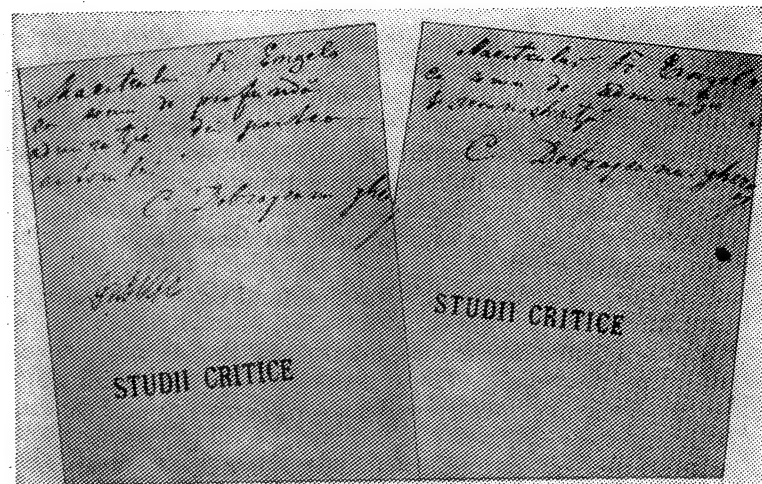 Maestrului Fr. Engels
ca semn de profundă
admirație din partea
autorului
C Dobrogeanu Gherea
STUDII CRITICE
Maestrului Fr. Engels
ca semn de admirație
și recunoștință
C Dobrogeanu Gherea
STUDII CRITICE